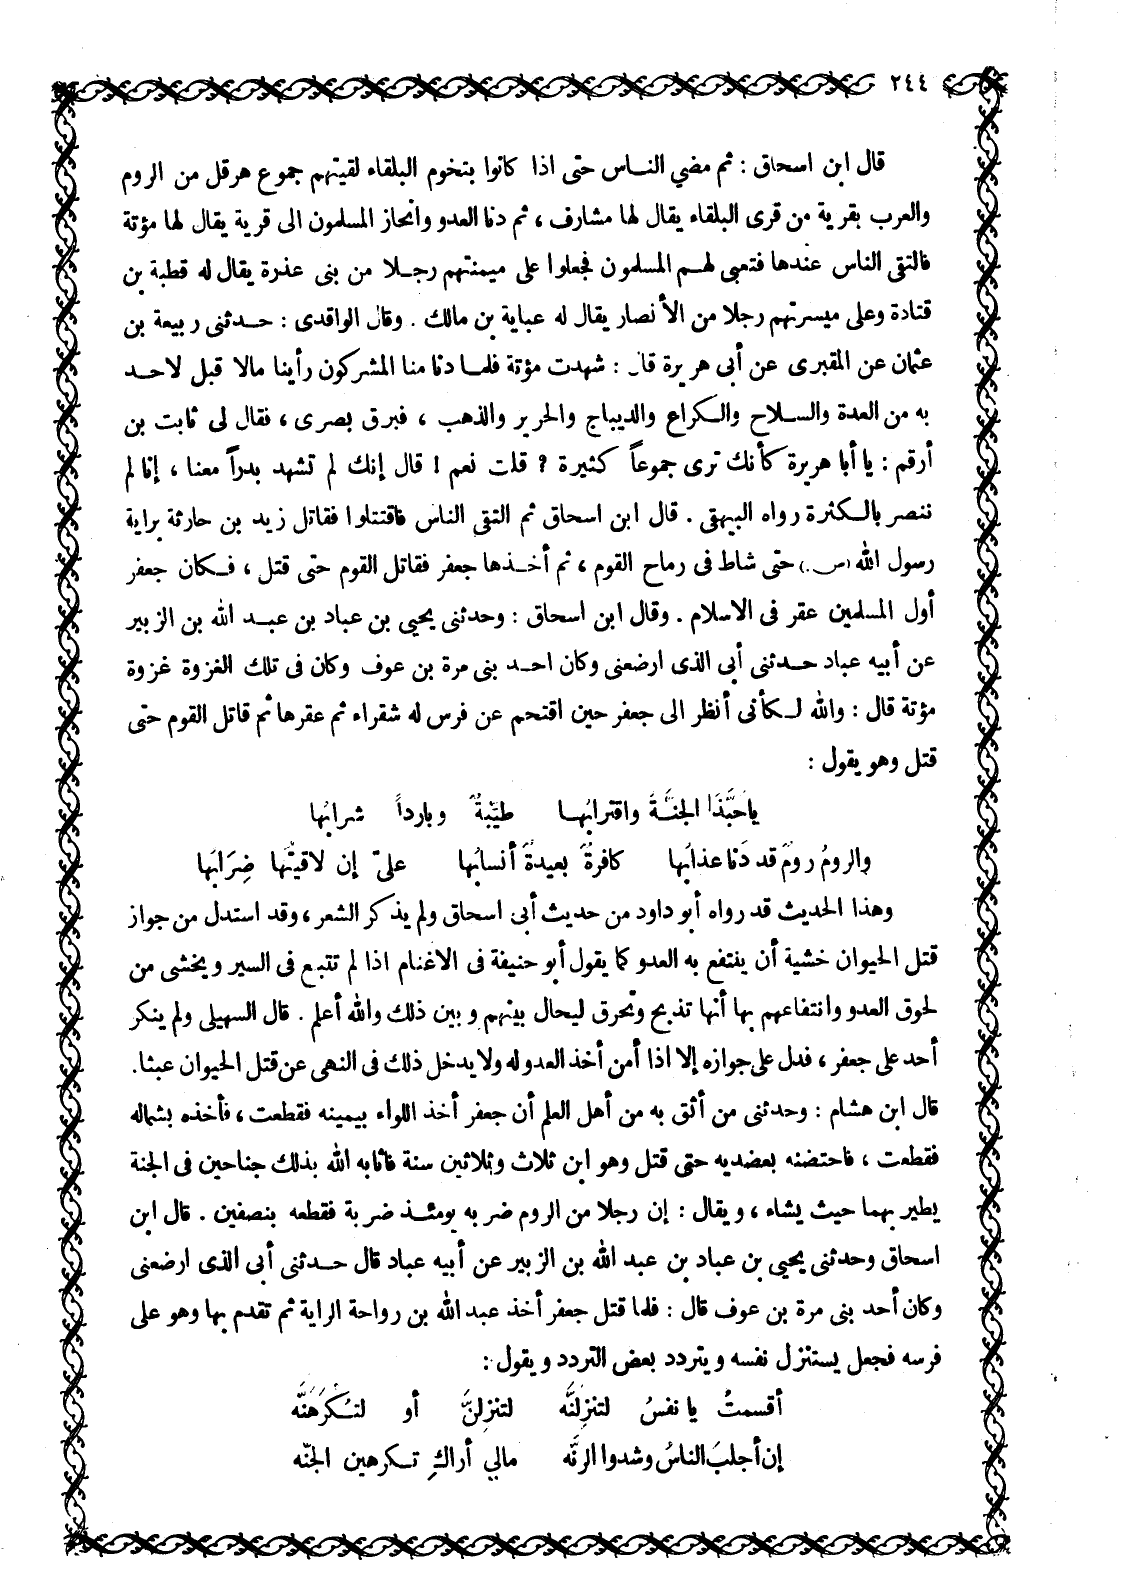 ٢٤٤
قال ابن اسحاق : ثم مضي النـاس حتى اذا كانوا بتخوم البلقاء لقيتهم جموع هرقل من الروم
والعرب بقرية من قرى البلقاء يقال لها مشارف ، ثم دنا العدو وانحاز المسلمون الى قرية يقال لها مؤتة
فالتقى الناس عندها فتعبى لهـم المسلمون فجعلوا على ميمنتهم رجـلا من بنى عذرة يقال له قطبة بن
قتادة وعلى ميسرتهم رجلا من الأنصار يقال له عباية بن مالك . وقال الواقدى : حـدثنى ربيعة بن
عثمان عن المقبرى عن أبى هريرة قال : شهدت مؤتة فلمـا دنا منا المشركون رأينا مالا قبل لاحـد
به من العدة والسـلاح والـكراع والديباج والحرير والذهب ، فبرق بصرى ، فقال لى ثابت بن
أرقم : يا أبا هريرة كأنك ترى جموعاً كثيرة ؟ قلت نعم ! قال إنك لم تشهد بدراً معنا ، إنا لم
ننصر بالـكثرة رواه البيهقى . قال ابن اسحاق ثم التقى الناس فاقتتلوا فقاتل زيد بن حارثة براية
رسول الله (ص.) حتى شاط فى رماح القوم ، ثم أخـذها جعفر فقاتل القوم حتى قتل ، فـكان جعفر
أول المسلمين عقر فى الاسلام . وقال ابن اسحاق : وحدثنى يحيى بن عباد بن عبـد الله بن الزبير
عن أبيه عباد حـدثنى أبى الذى ارضعنى وكان احـد بنى مرة بن عوف وكان فى تلك الغزوة غزوة
مؤتة قال : والله لـكأنى أنظر الى جعفر حين اقتحم عن فرس له شقراء ثم عقرها ثم قاتل القوم حتى
قتل وهو يقول :
ياحَبَّذَا الجنَّـةُ واقترابُهـا طيّبةٌ وبارداً شرابُها
والرومُ رومٌ قد دَنا عذابُها كافرةٌ بعيدةٌ أنسابُها علىّ إن لاقيتُها ضِرَابَها
وهذا الحديث قد رواه أبو داود من حديث أبى اسحاق ولم يذكر الشعر ، وقد استدل من جواز
قتل الحيوان خشية أن ينتفع به العدو كما يقول أبو حنيفة فى الاغنام اذا لم تتبع فى السير ويخشى من
لحوق العدو وانتفاعهم بها أنها تذبح وتحرق ليحال بينهم وبين ذلك والله أعلم . قال السهيلى ولم ينكر
أحد على جعفر ، فدل على جوازه إلا اذا أمن أخذ العدو له ولا يدخل ذلك فى النهى عن قتل الحيوان عبثا.
قال ابن هشام : وحدثنى من أثق به من أهل العلم أن جعفر أخذ اللواء بيمينه فقطعت ، فأخذه بشماله
فقطعت ، فاحتضنه بعضديه حتى قتل وهو ابن ثلاث وثلاثين سنة فاثابه الله بذلك جناحين فى الجنة
يطير بهما حيث يشاء ، ويقال : إن رجلا من الروم ضربه يومئـذ ضربة فقطعه بنصفين . قال ابن
اسحاق وحدثنى يحيى بن عباد بن عبد الله بن الزبير عن أبيه عباد قال حـدثنى أبى الذى ارضعنى
وكان أحد بنى مرة بن عوف قال : فلما قتل جعفر أخذ عبد الله بن رواحة الراية ثم تقدم بها وهو على
فرسه فجعل يستنزل نفسه ويتردد بعض التردد ويقول :
أقسمتُ يا نفسُ لتنزِلنَّه لتنزِلنَّ أو لتـُكْرَهَنَّه
إن أجلبَ الناسُ وشدوا الرنَّه مالي أراكِ تـكرهين الجنّه